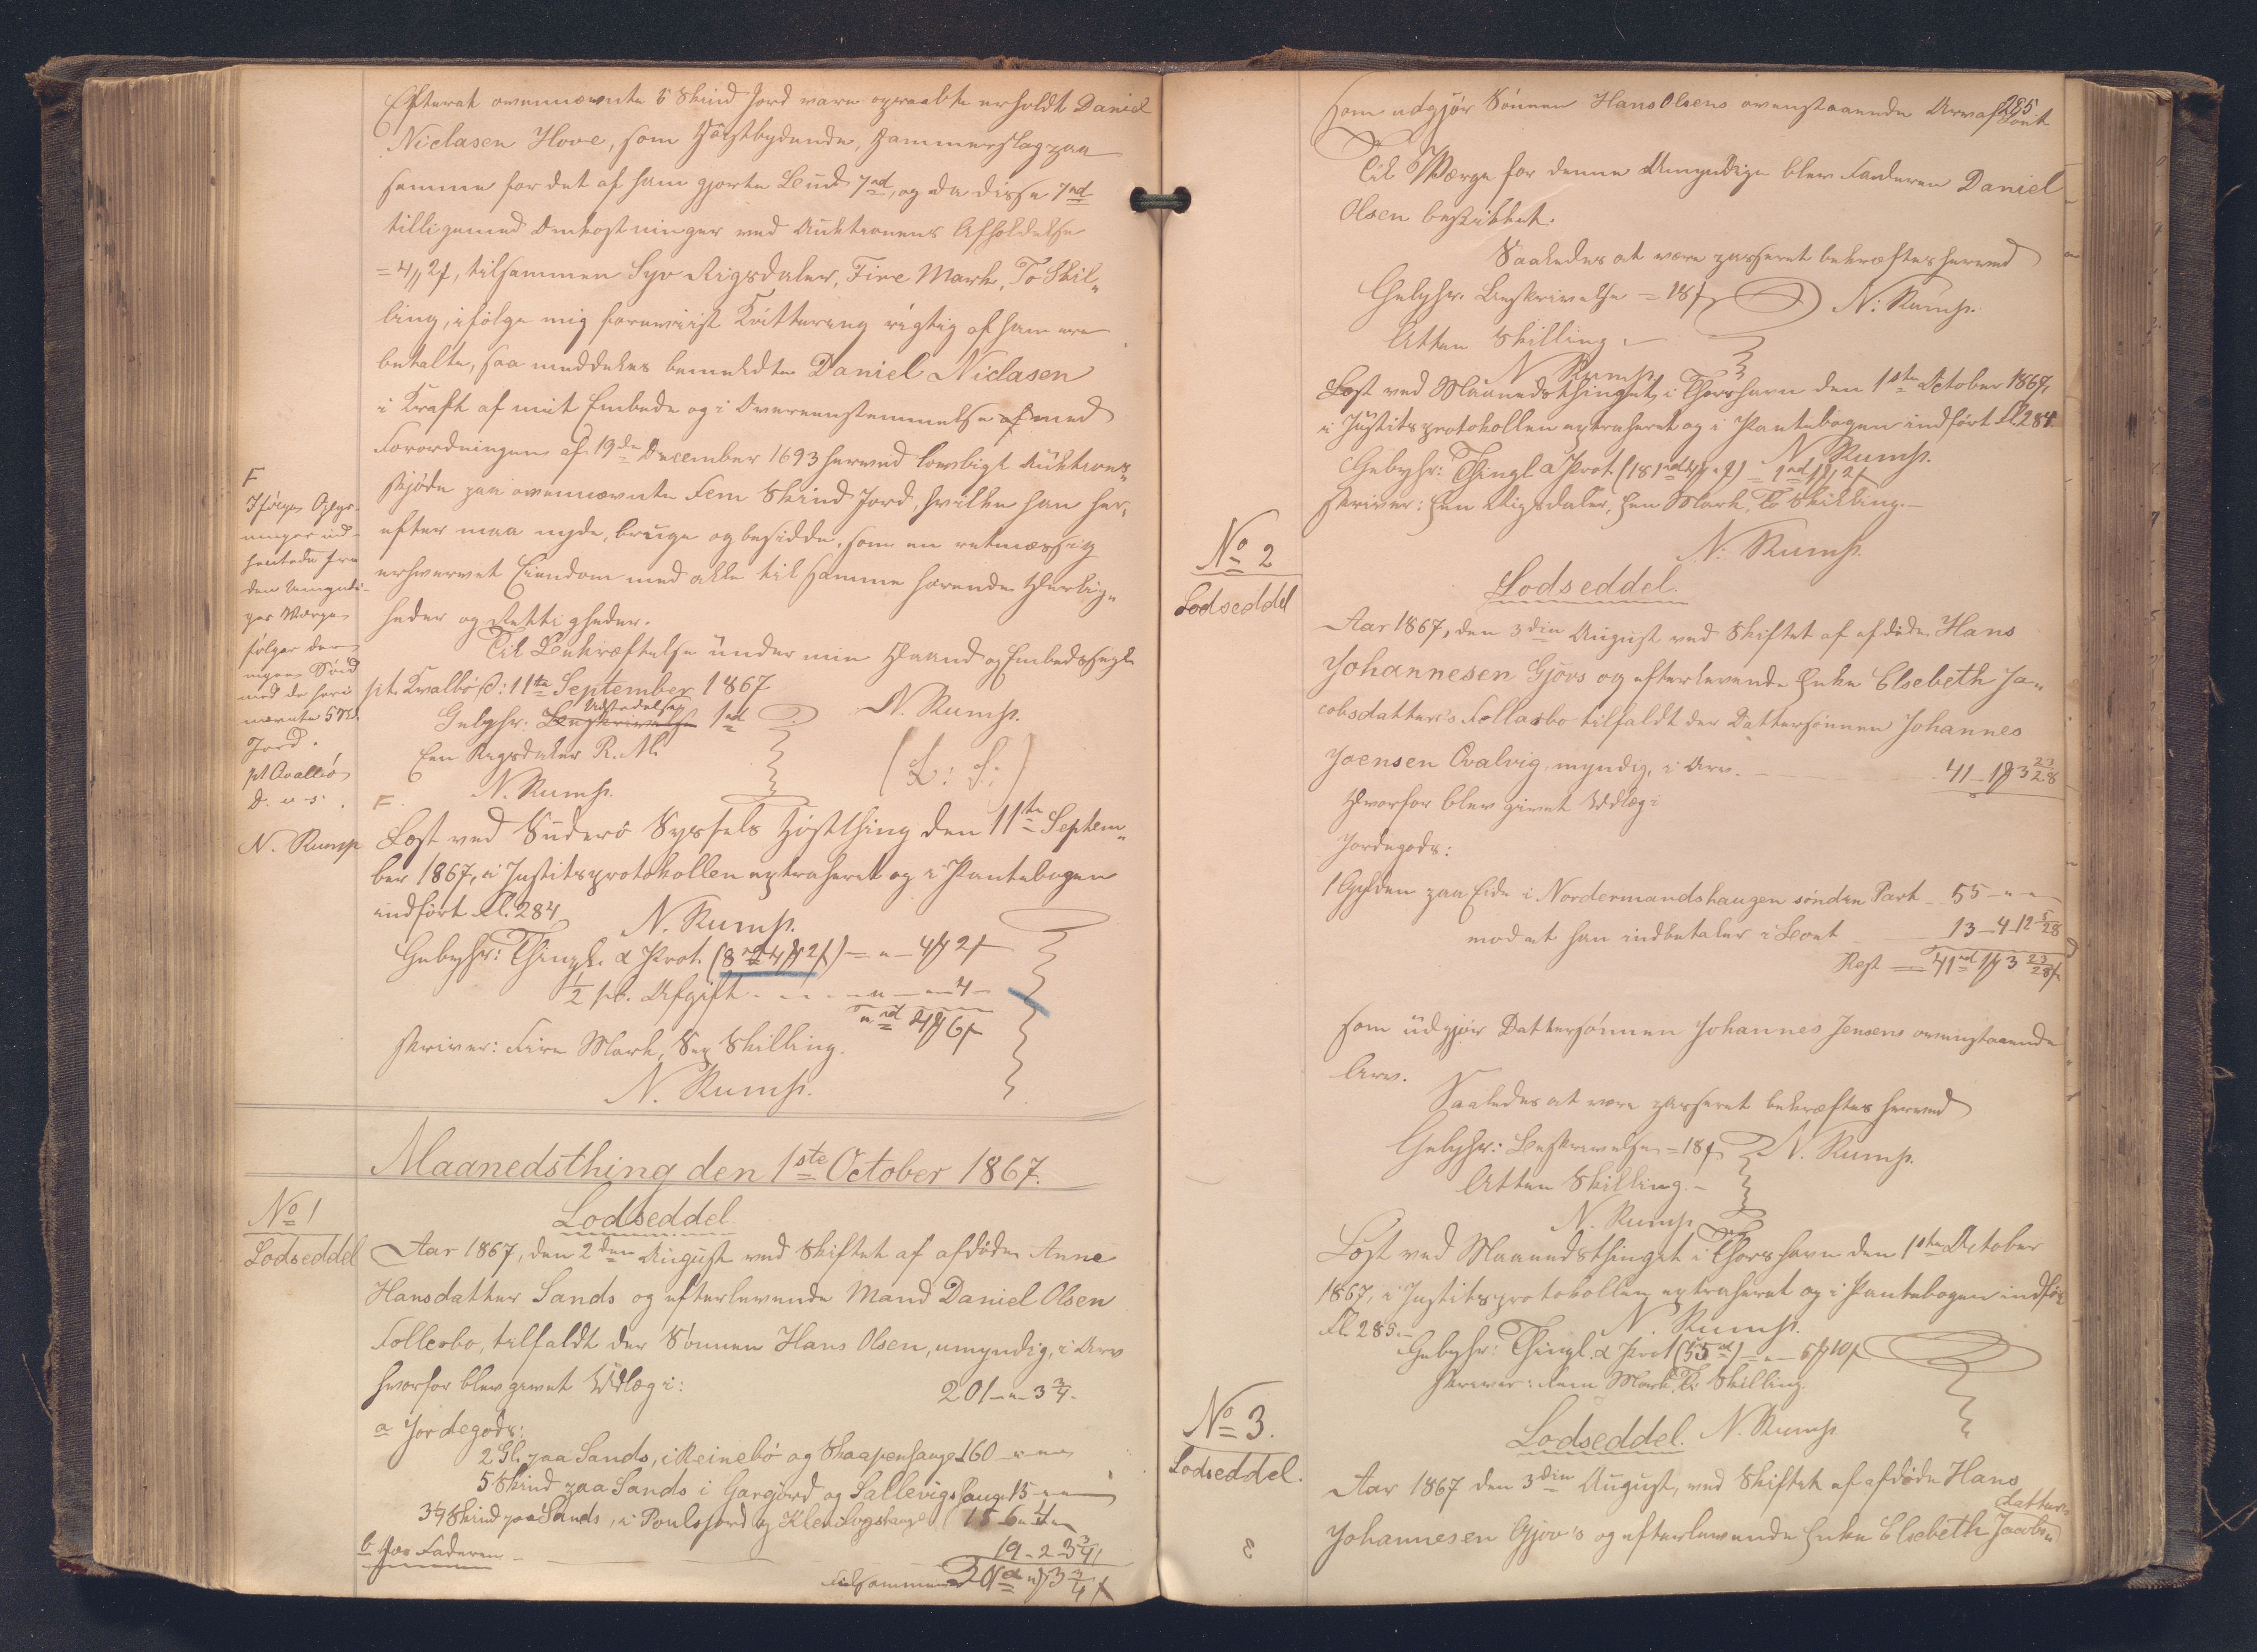 Efterat ovennævnte 5 Skind Jord vare opraabte erholdt Daniel
Niclasen Hove, som Höistbydende, Hammerslag paa
samme for det af ham gjorte Bud 7 rd, og da disse 7 rd
tilligemed Omkostninger ved Auktionens Afholdelse
= 4 " 2 f, tilsammen Syv Rigsdaler, Fire Mark, To Skil„
ling, ifölge mig foreviist Kvittering rigtig af ham ere
betalte, saa meddeles bemeldte Daniel Niclasen
i Kraft af mit Embede og i Overeensstemmelse af med
Forordningen af 19de December 1693 herved lovligt Auktions„
skjöde paa ovennævnte Fem Skind Jord, hvilke han her„
efter maa nyde, bruge og besidde, som en retmæssig
erhvervet Eiendom med alle til samme hørende Herlig„
heder og Rettigheder.
Til Bekræftelse under min Haand og Embedssegl.
pt. Kvalbö d: 11te September 1867
Gebyhr. Beskrivelse Udstedelse 1 rd
N. Rump.
Een Rigsdaler R. M.
(L: S:)
N. Rump.
F
Ifölge Oplys-
ninger ind-
hentede fra
den Umyndi-
ges Værge
følger den-
med de heri
nævnte 5 Skd
Jord.
pt Qvalbö
D. u. s.
N. Rump
F.
Læst ved Suderö Syssels Höstthing den 11te Septem„
ber 1867, i Justitsprotokollen extraheret og i Pantebogen
indfört Fl. 284
N. Rump.
Gebyhr: Thingl. & Prot. (8 rd 4 # 2 f) = " - 4 # 2 f
1/2 pC. Afgift - - - - " - " - 4 -
" rd 4 # 6 f
skriver: Fire Mark, Sex Skilling.
N. Rump.
Maanedsthing den 1ste October 1867.
No 1
Lodseddel
Lodseddel.
Aar 1867, den 2den August ved Skiftet af afdöde Anne
Hansdatter Sands og efterlevende Mand Daniel Olsen
Fællesbo, tilfaldt der Sönnen Hans Olsen, umyndig, i Arv
hvorfor blev givet Udlæg i:
201 - " - 3 3/4 -
a Jordegods:
2 Gl. paa Sands, i Reinebö og Skaapenhauge 160 - " -
5 Skind paa Sands i Gargjord og Sallevigs hauge 15 - " -
3 1/4 Skind paa Sands, i Poulsjord og hauge 15 6 " 4 "
b hos Faderen - 19 - 2 - 3 3/4
tilsammen 201 rd " # 3 3/4 f
285
som udgjör Sönnen Hans Olsens ovenstaaende Arvaflont
Til Værge for denne Umyndige blev Faderen Daniel
Olsen beskikket.
Saaledes at være passeret bekræftes herved
Gebyhr. Beskrivelse = 18 f
N: Rump.
Atten Skilling. -
N. Rump.
Læst ved Maanedsthinget i Thorshavn den 1ste October 1867,
i Justitsprotokollen extraheret og i Pantebogen indfört Fl. 284
N. Rump.
Gebyhr: Thingl & Prot. (181 rd 4 # " f) = 1 rd 1 # 2 f
skriver: Een Rigsdaler, Een Mark, To Skilling. -
N. Rump.
No 2
Lodseddel
Lodseddel.
Aar 1867, den 3die August ved Skiftet af afdöde Hans
Johannesen Gjövs og efterlevende Enke Elsebeth Ja„
cobsdatters Fællasbo tilfaldt der Dattersönnen Johannes
Joensen Qvalvig, myndig, i Arv. - 41 - 1 # 3 23/28
Hvorfor blev givet Udlæg i
Jordegods:
1 Gylden paa Eide i Nordermandshaugen söndre Part - 55 - " - "
mod at han indbetaler i Boet 13 - 4 - 12 5/28
Rest = 41 rd 1 # 3 23/28 f
som udgjör Dattersönnen Johannes Jensens ovenstaaende
Arv.
Saaledes at være passeret bekræftes herved
Gebyhr: Beskrivelse = 18 f
N. Rump.
Atten Skilling. -
N. Rump
Læst ved Maanedsthinget i Thorshavn den 1ste October
1867, i Justitsprotokollen extraheret og i Pantebogen indför
Fl. 285. -
N. Rump.
Gebyhr: Thingl. & Prot (55 rd) = " - 5 # 10 f
skriver: Fem Mark, Ti Skilling.
N. Rump
No 3.
Lodseddel.
Lodseddel.
Aar 1867 den 3die August, ved Skiftet af afdöde Hans
Johannesen Gjöv's og efterlevende Enke Elsebeth Jacobs„
datters